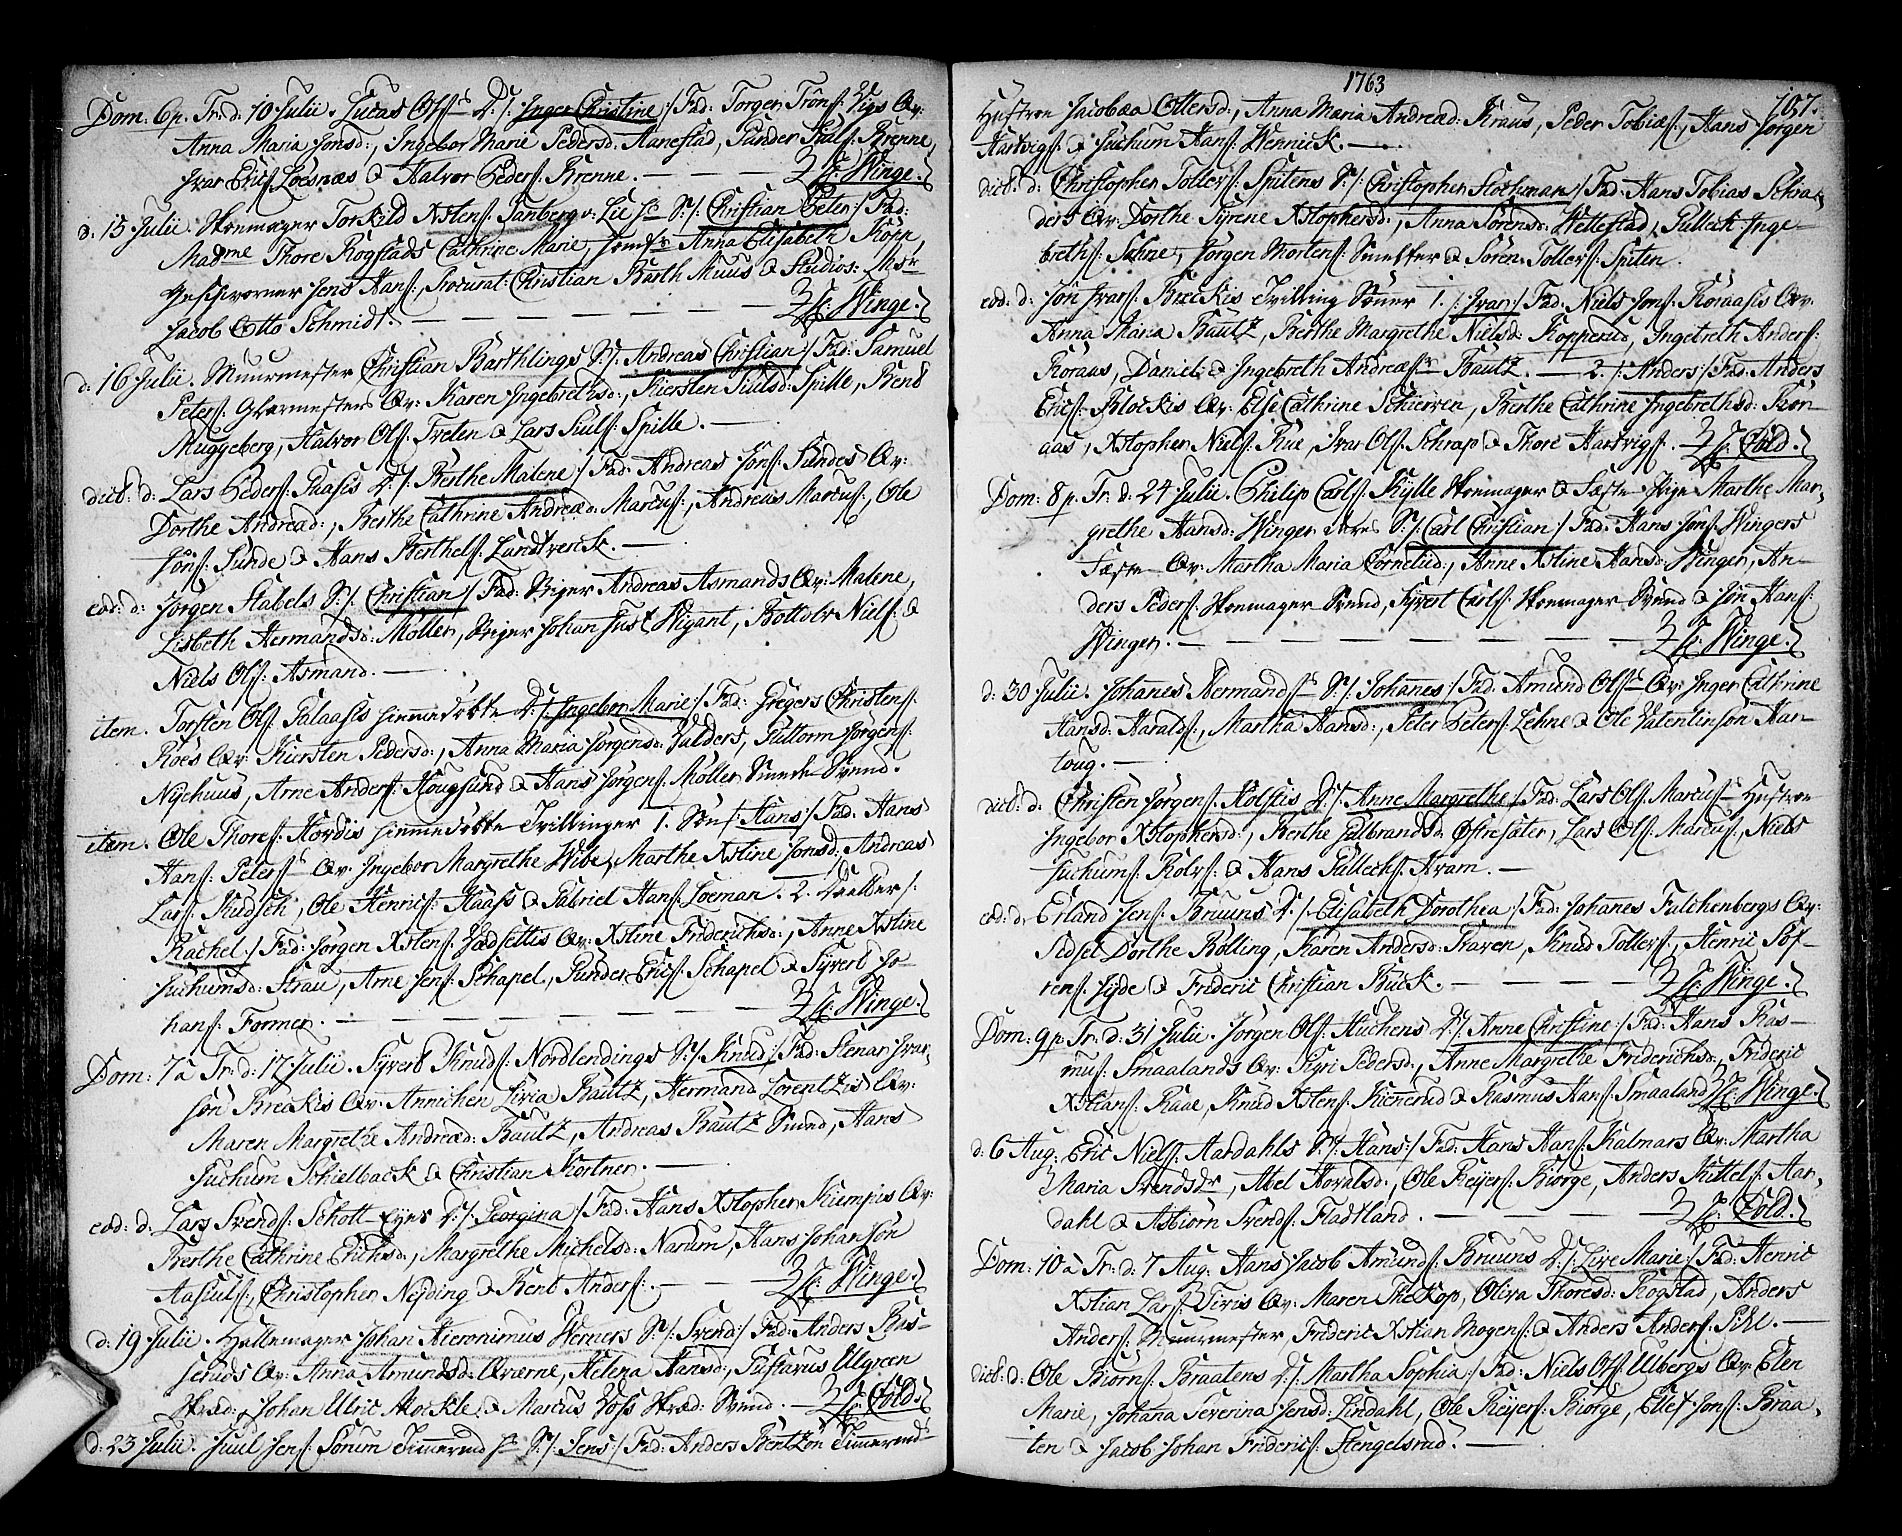 Dom: 6 p. Tr: d: 10 Julii. Lucas Ols: D: /: Inger Christine :/ Fad: Torger Tröns: Vigs Qv:
Anna Maria Jonsd:, Ingebor Marie Pedersd: Aanestad, Gunder Juls: Brenne,
Ivar Erics: Loesnæs & Halvor Peders: Brenne. — — — H: Winge.
d: 15 Julii. Skomager Torkild Xstens: Tanberg v: Lie S: /: Christian Peter :/ Fad:
Madme Thore Rogstads Cathrine Marie, Jomfr Anna Elisabeth Kopp,
Jens Hans:, Procurat: Christian Barth Muus & Studios: Msr
Jacob Otto Schmidt. — — — H: Winge.
d: 16 Julii. Muurmester Christian Barthlings S: /: Andreas Christian :/ Fad: Samuel
Peters: Glarmesters Qv: Karen Ingebrethsd:, Kiersten Juulsd: Spille, Bend
Muggeberg, Halvor Ols: Treten & Lars Juuls: Spille. —
dict: d: Lars Peders: Gaasis D: /: Berthe Malene :/ Fad: Andreas Jons: Sundes Qv:
Dorthe Andread:, Berthe Cathrine Andread: Marcus:, Andreas Marcus:, Ole
Jöns: Sunde & Hans Berthels: Lundtvenck. —
eod: d: Jörgen Stabels S: /: Christian :/ Fad: Andreas Asmands Qv: Malene,
Lisbeth Hermandsd: Möller, Johan Just Wigant, Bottolv Niels: &
Niels Ols: Asmand. —
item. Torsten Ols: Galaasis hiemmedöbte D: /: Ingebor Marie :/ Fad: Gregers Christens:
Roes Qv: Kiersten Pedersd:, Anna Maria Jörgensd: Valders, Guttorm Jörgens:
Nyehuus, Arne Anders: Hougsund & Hans Jörgens: Möller Smede Svend.
item. Ole Thores: Hordis hiemmedöbte Tvillinger 1. Sön /: Hans :/ Fad: Hans
Hans: Peters: Qv: Ingebor Margrethe Wibe, Marthe Xstine Jonsd: Andreas
Lars: Kudsch, Ole Henrics: Haass & Gabriel Hans: Loeman. 2. Daatter /:
Rachel :/ Fad: Jörgen Xstens: Qv: Xstine Friderichsd:, Anne Xstine
Juchumsd: Strau, Arne Jens: Schapel, Gunder Erics: Schapel & Syvert Jo-
hans: Former. — — — H: Winge.
Dom: 7 a Tr: d: 17 Julii. Syvert Knuds: Nordlendings S: /: Knud :/ Fad: Stenar Ivar-
sön Breckis Qv: Annichen Livia Bautz, Hermand Lorentzis Qv:
Maren Margrethe Andread: Bautz, Andreas Bautz Svend, Hans
Juchum Schielback & Christian Kortner. —
eod: d: Lars Svends: Schott-Eyes D: /: Georgina :/ Fad: Hans Xstopher Kiempis Qv:
Berthe Cathrine Erichsd:, Margrethe Michelsd: Narum, Hans Johansön
Aasuls:, Christopher Neyding & Bent Anders: — — H: Winge.
d: 19 Julii. Johan Hieronimus Werners S: /: Svend :/ Fad: Anders Bus-
seruds Qv: Anna Amundsd: Qværne, Helena Hansd:, Gustavus Ulgreen
Skræd:, Johan Ulric Morkle, & Marcus Voss Skræd: Svend. — H: Cold.
d: 23 Julii. Juul Jens: Sorum S: /: Jens :/ Fad: Anders Bentzön
1763
107.
Hustroe Jacobæa Ottersd:, Anna Maria Andread: Kraus, Peder Tobias:, Hans Jörgen
Hartvigs: & Juchum Hans: Wennick. —
dict: d: Christopher Tollers: Spitens S: /: Christopher Stockman :/ Fad: Hans Tobias Schra-
ders Qv: Dorthe Syrene Xstophersd:, Anna Sörensd: Hettestad, Gulleck Inge-
breths: Sahne, Jörgen Mortens: & Sören Tollers: Spiten.
eod: d: Jön Ivars: Breckis Tvilling Sönner 1. /: Ivar :/ Fad: Niels Jons: Koraasis Qv:
Anna Maria Bautz, Berthe Margrethe Nielsd: Kopperud, Ingebreth Anders:
Koraas, Daniel & Ingebreth Andreæs: Bautz. — 2. /: Anders :/ Fad: Anders
Erics: Blockis Qv: Else Cathrine Schierven, Berthe Cathrine Ingebrethsd: Kor-
aas, Xstopher Niels: Rue, Ivar Ols: Schrap & Thore Hartvigs: H: Cold.
Dom: 8 p. Tr: d: 24 Julii. Philip Carls: Kylle Skomager & Fæste Pige Marthe Mar-
grethe Hansd: Winger deres S: /: Carl Christian :/ Fad: Hans Jöns: Wingers
Fæste Qv: Martha Maria Cornelid:, Anne Xstine Hansd: Winger, An-
ders Peders: Skomager Svend, Syvert Carls: Skomager Svend & Jön Hans:
Winger. — — — H: Winge.
d: 30 Julii. Johanes Hermands: S: /: Johannes :/ Fad: Amund Ols: Qv: Inger Cathrine
Hansd: Haralds:, Martha Hansd:, Peter Peters: Lehne & Ole Valentinsön Har-
toug. —
dict: d: Christen Jörgens: Kolskis D: /: Anne Margrethe :/ Fad: Lars Ols: Marcus: Hustroe
Ingebor Xstophersd:, Berthe Gulbrandsd: Östresater, Lars Ols: Marcus:, Niels
Juchums: Rolvs: & Hans Gullecks: Kram. —
eod: d: Erland Jens: Bruuns D: /: Elisabeth Dorothea :/ Fad: Johanes Falckenbergs Qv:
Sidsel Dorthe Bolling, Karen Andersd: Graven, Knud Tollers:, Henric Söf-
rens: Jyde & Frideric Christian Buck. — — H: Winge.
Dom: 9 p. Tr: d: 31 Julii. Jörgen Ols: Huchens D: /: Anne Christine :/ Fad: Hans Ras-
mus: Smaalands Qv: Kyri Pedersd:, Anne Margrethe Friderichsd:, Frideric
Xstians: Raae, Knud Xstens: Kiennerud & Rasmus Hans: Smaaland H: Winge.
d: 6 Aug: Eric Niels: Aardahls S: /: Hans :/ Fad: Hans Hans: Kalmars Qv: Martha
Maria Svendsdr, Abel Hovalsd:, Ole Reyers: Biorge, Anders Kittels: Aar-
dahl & Asbiörn Svends: Fladtland. — — H: Cold.
Dom: 10 a Tr: d: 7 Aug: Hans Jacob Amunds: Bruuns D: /: Live Marie :/ Fad: Henric
Xstian Lars: Qv: Maren The Kop, Oliva Thoresd: Rogstad, Anders
Anders: Muurmester, Frideric Xstian Mogens: & Anders Anders: Pihl. —
dict: d: Ole Biörns: Braatens D: /: Martha Sophia :/ Fad: Niels Ols: Ulbergs Qv: Elen
Marie, Johana Severina Jensd: Lindahl, Ole Reyers: Biorge, Ellef Jons: Braa-
ten & Jacob Johan Friderics: Stengelsrud. —